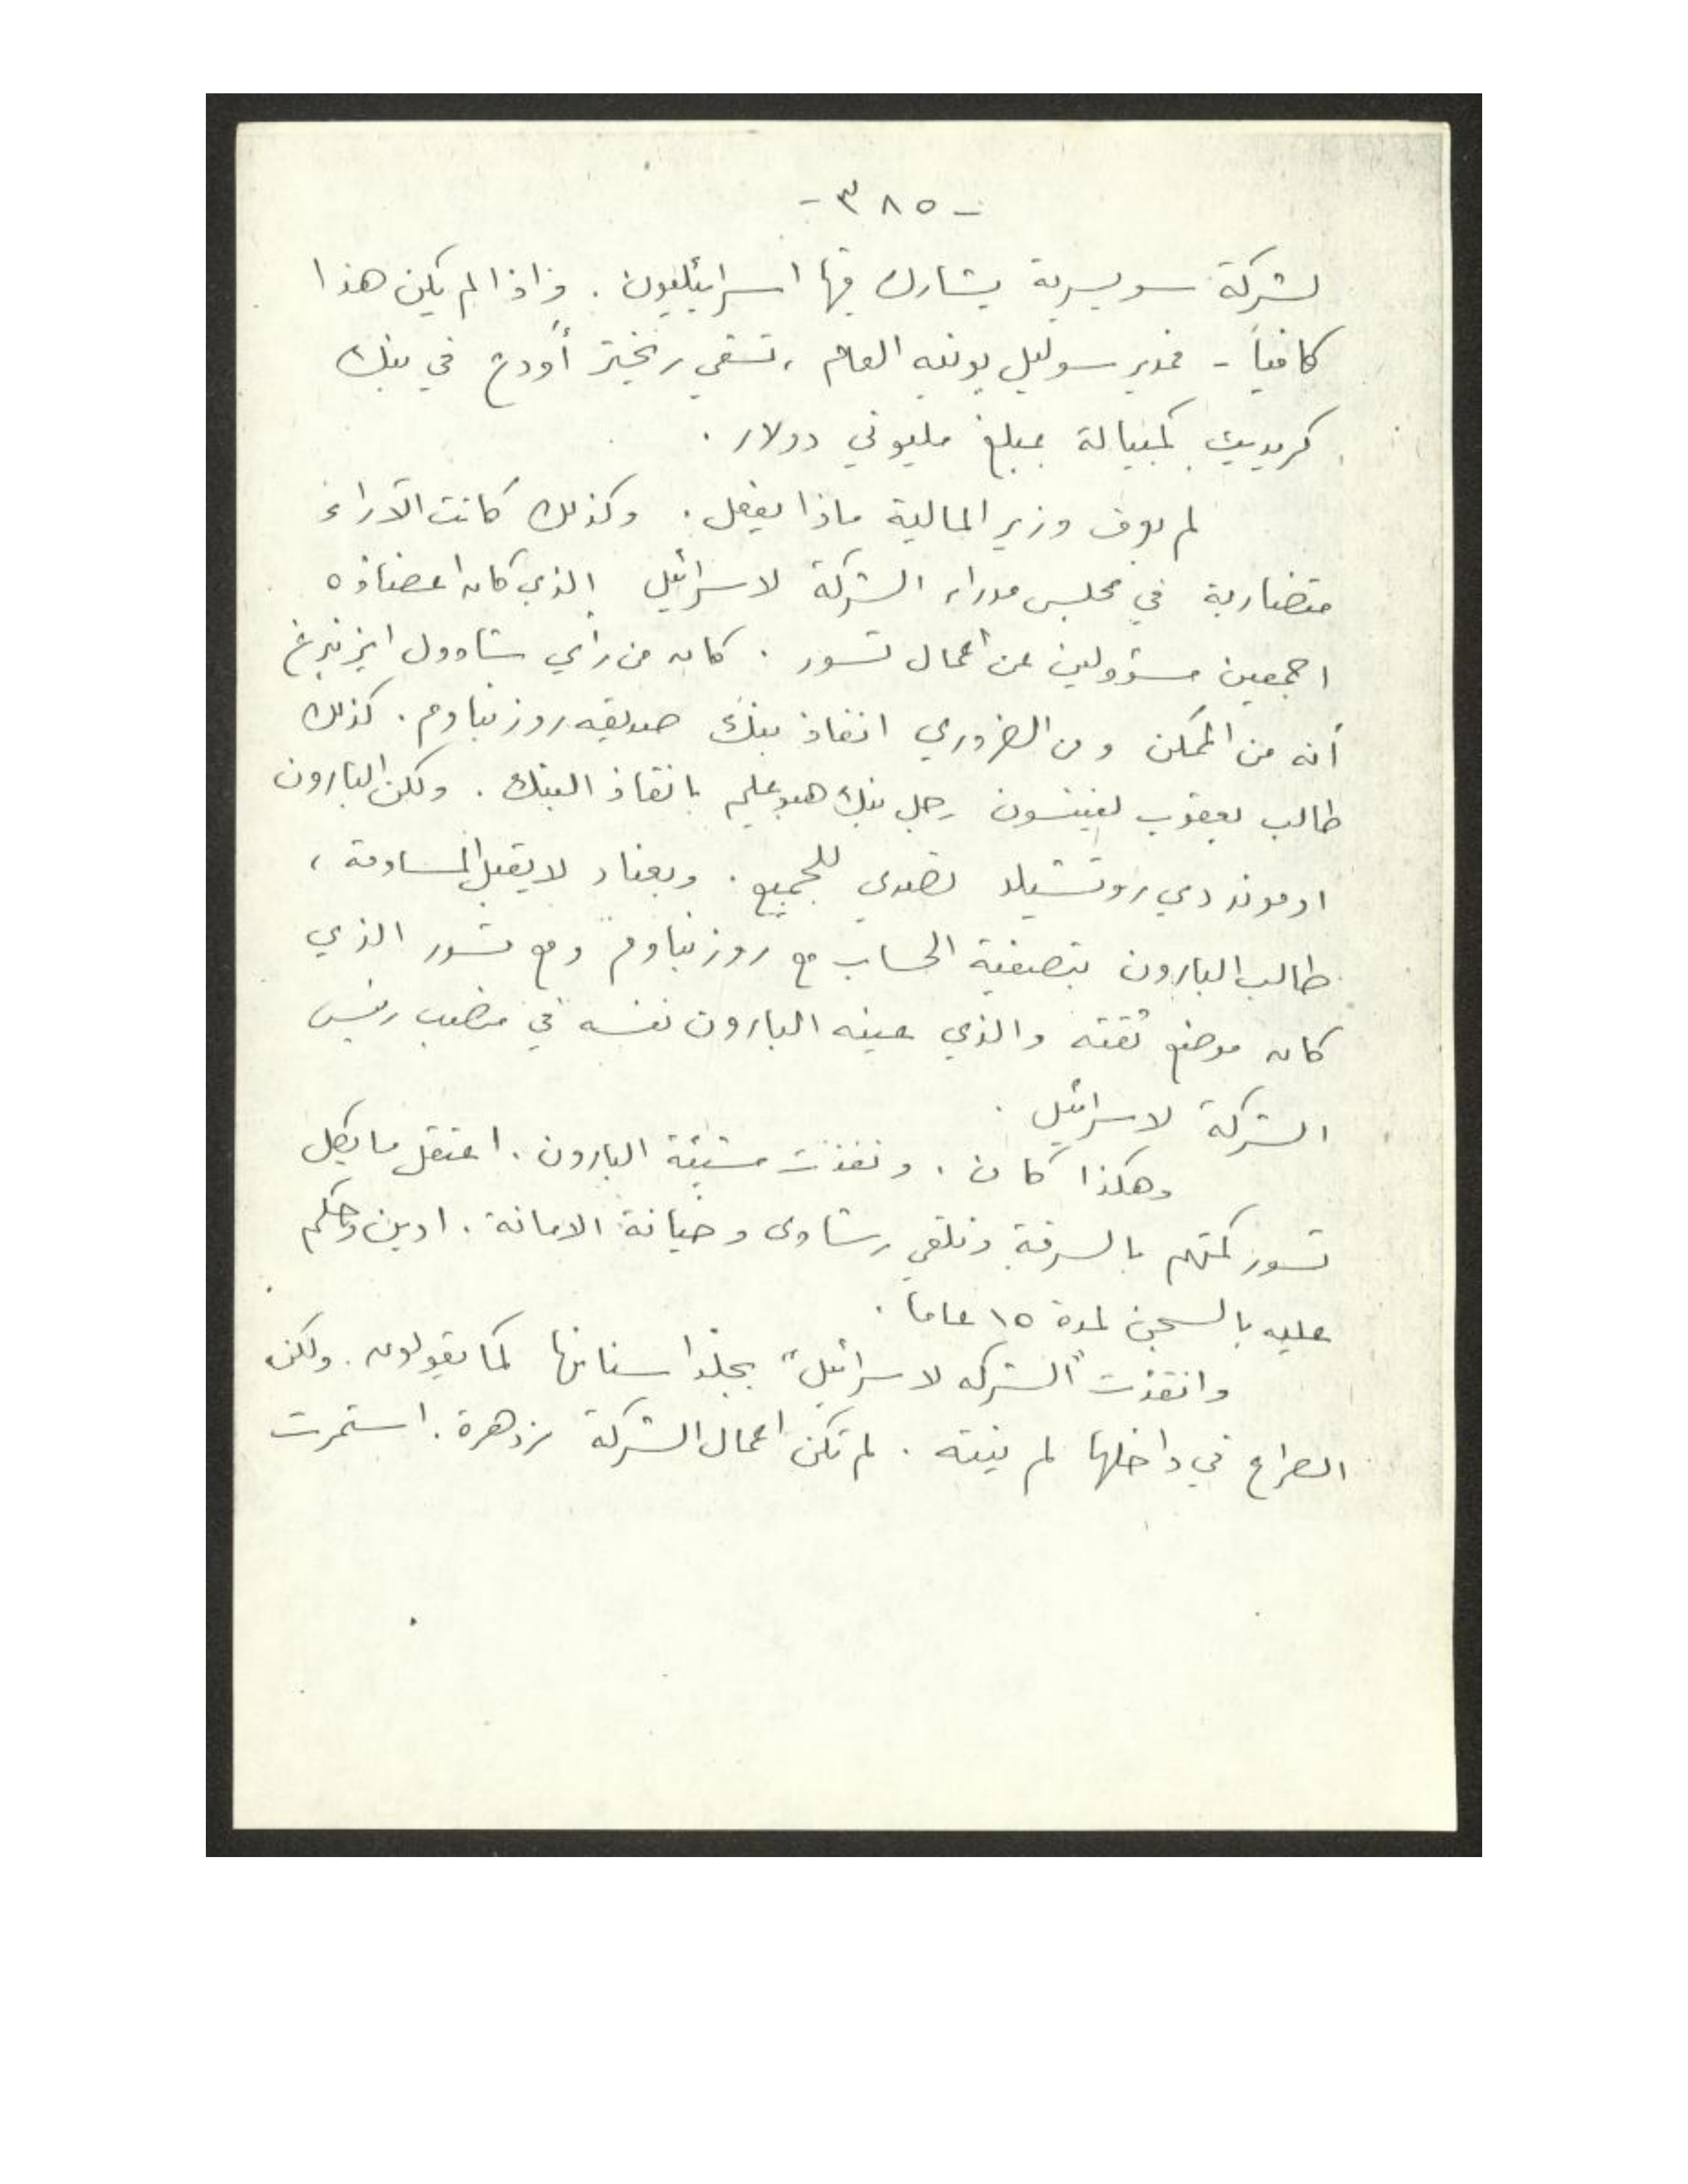 - ٣٨٥ -
لشركة سويسرية يشارك فيها اسرائيليون . واذا لم يكن هذا
كافياً - فمدير سوليل بونيه العام ، تسفي ريختر أودع في بنك
كريديت كمبيالة بمبلغ مليوني دولار .
لم يعرف وزير المالية ماذا يفعل . وكذلك كانت الآراء
متضاربة في مجلس مدراء الشركة لاسرائيل الذي كان اعضاؤه
اجمعين مسؤولين عن أعمال تسور . كان من رأي شاوول ايزنبرغ
أنه من الممكن ومن الضروري انقاذ بنك صديقه روزنباوم . كذلك
طالب يعقوب لفينسون رجل بنك هبوعليم بانقاذ البنك . ولكن البارون
ادموند دي روتشيلد تصدى للجميع . وبعناد لا يقبل المساومة ،
طالب البارون بتصفية الحساب مع روزنباوم ومع تسور الذي
كان موضع ثقته والذي عينه البارون نفسه في منصب رئيس
الشركة لاسرائيل .
وهكذا كان . ونفذت مشيئة البارون . اعتقل مايكل
تسور كمتهم بالسرقة وتلقي رشاوى وخيانة الامانة . ادين وحكم
عليه بالسجن لمدة ١٥ عاماً .
وانقذت "الشركه لاسرائيل" بجلد اسنانها كما يقولون . ولكن
الصراع في داخلها لم ينته . لم تكن اعمال الشركة مزدهرة . استمرت